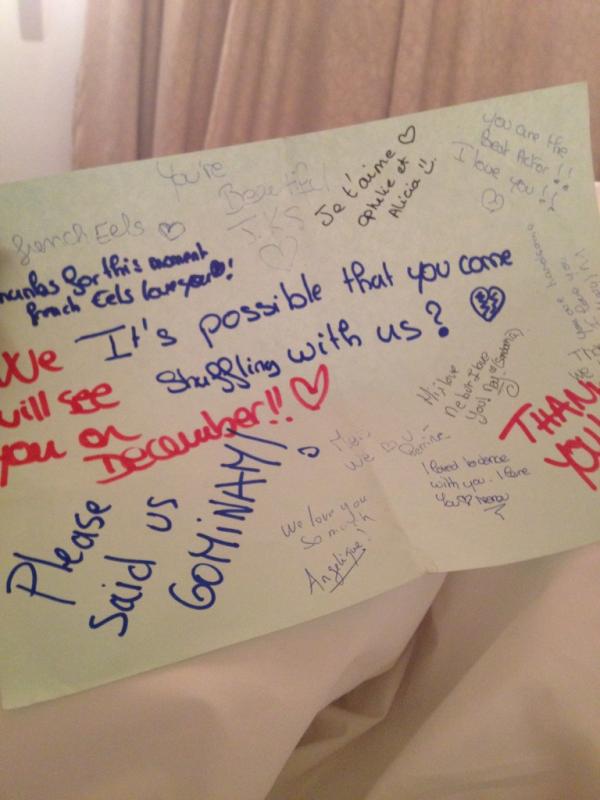 You're
Beautiful
J.K.S
french Eels
Je t'aime
Ophélie et
Alicia
You are the
Best Actor !!
I love you !!
for this moment
french Eels love you !
It's possible that you come
shuffling with us ?
We
will see
you on
December!!
Please
said us
GOMiNAM
you are handsome
you!
We
We love you
so much
Angelique!
I loved to dance
with you. I love
you
THAN
YOU